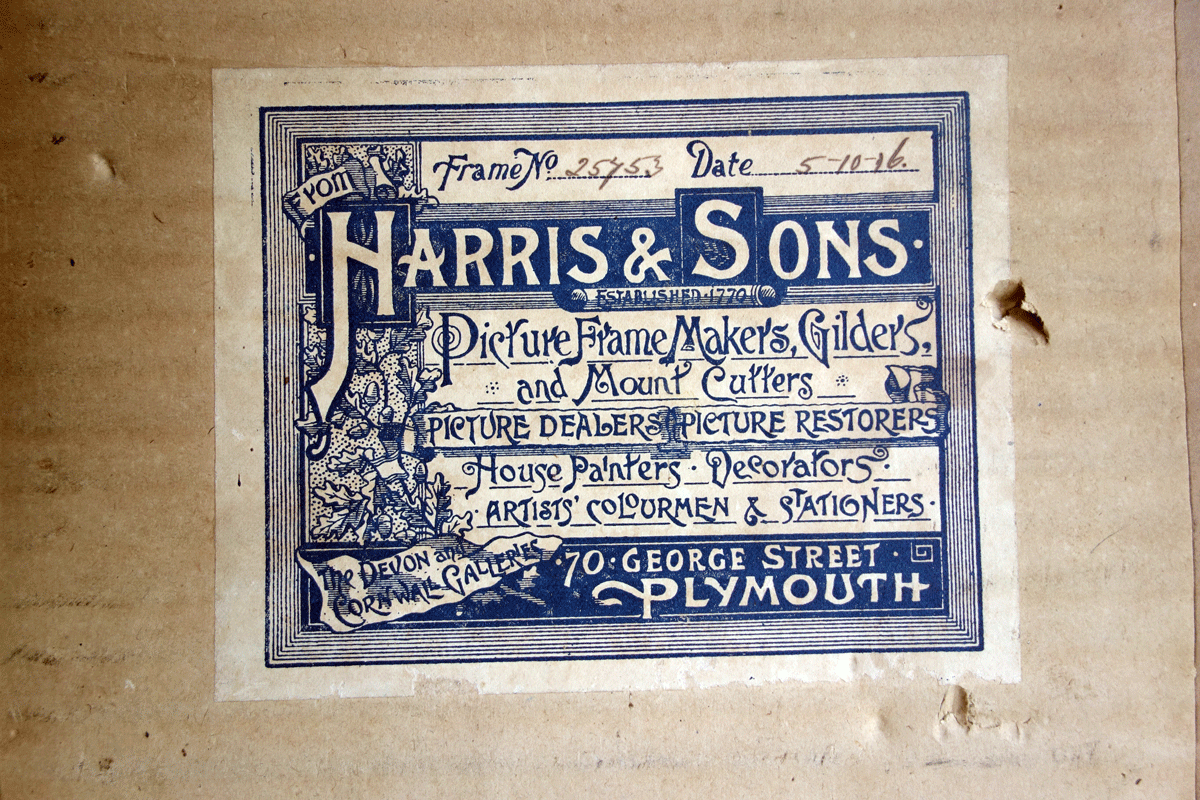 Frame No. 25753 Date 5-10-16.
From
HARRIS & SONS.
ESTABLISHED 1770
Picture Frame Makers, Gilders,
and Mount Cutters
PICTURE DEALERS PICTURE RESTORERS
House Painters · Decorators ·
· ARTISTS' COLOURMEN & STATIONERS ·
The DEVON and
CORNWALL GALLERIES
· 70 · GEORGE STREET ·
PLYMOUTH